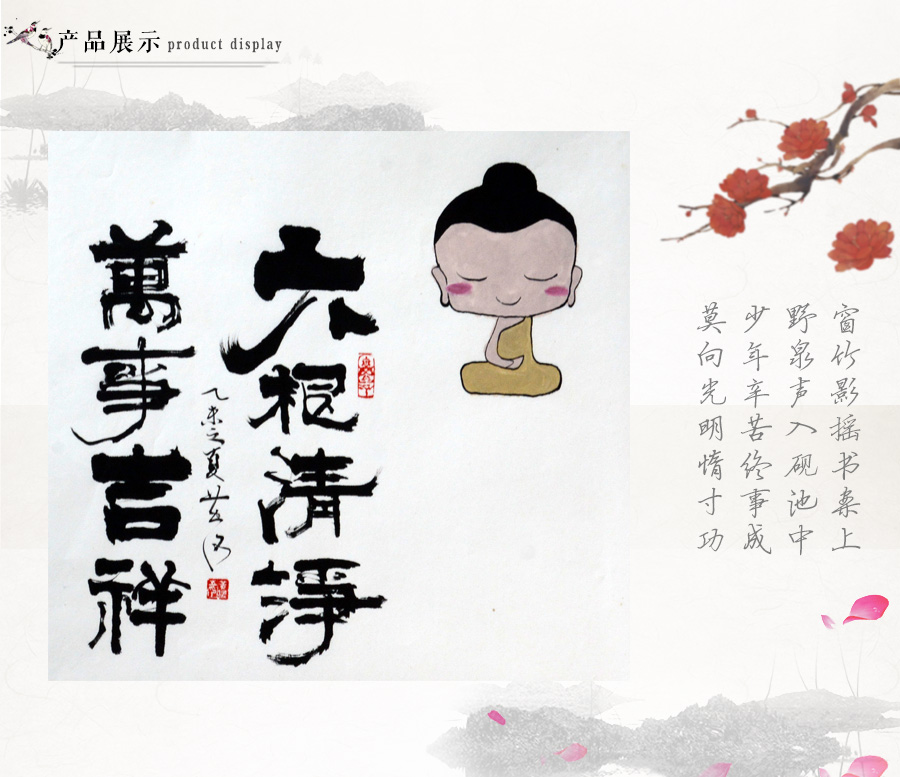 产品展示 product display
六根清淨
萬事吉祥
乙未之夏
窗竹影摇书案上
野泉声入砚池中
少年辛苦终事成
莫向光明惰寸功